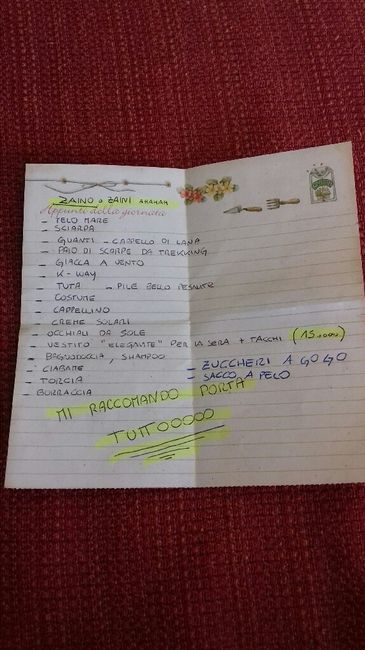 ZAINO o ZAINI AHAHAH
Appunti della giornata
- TELO MARE
- SCIARPA
- GUANTI - CAPPELLO DI LANA
- PAIO DI SCARPE DA TREKKING
- GIACCA A VENTO
- K-WAY
- TUTA - PILE BELLO PESANTE
- COSTUME
- CAPPELLINO
- CREME SOLARI
- OCCHIALI DA SOLE
- VESTITO "ELEGANTE" PER LA SERA + TACCHI
- BAGNODOCCIA, SHAMPOO
- CIABATTE - ZUCCHERI A GO GO
- TORCIA - SACCO A PELO
- BORRACCIA
MI RACCOMANDO PORTA
TUTTOOOOO